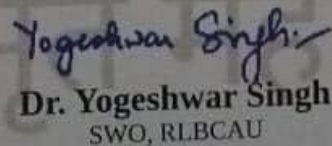 Yogeshwar Singh
Dr. Yogeshwar Singh
SWO, RLBCAU